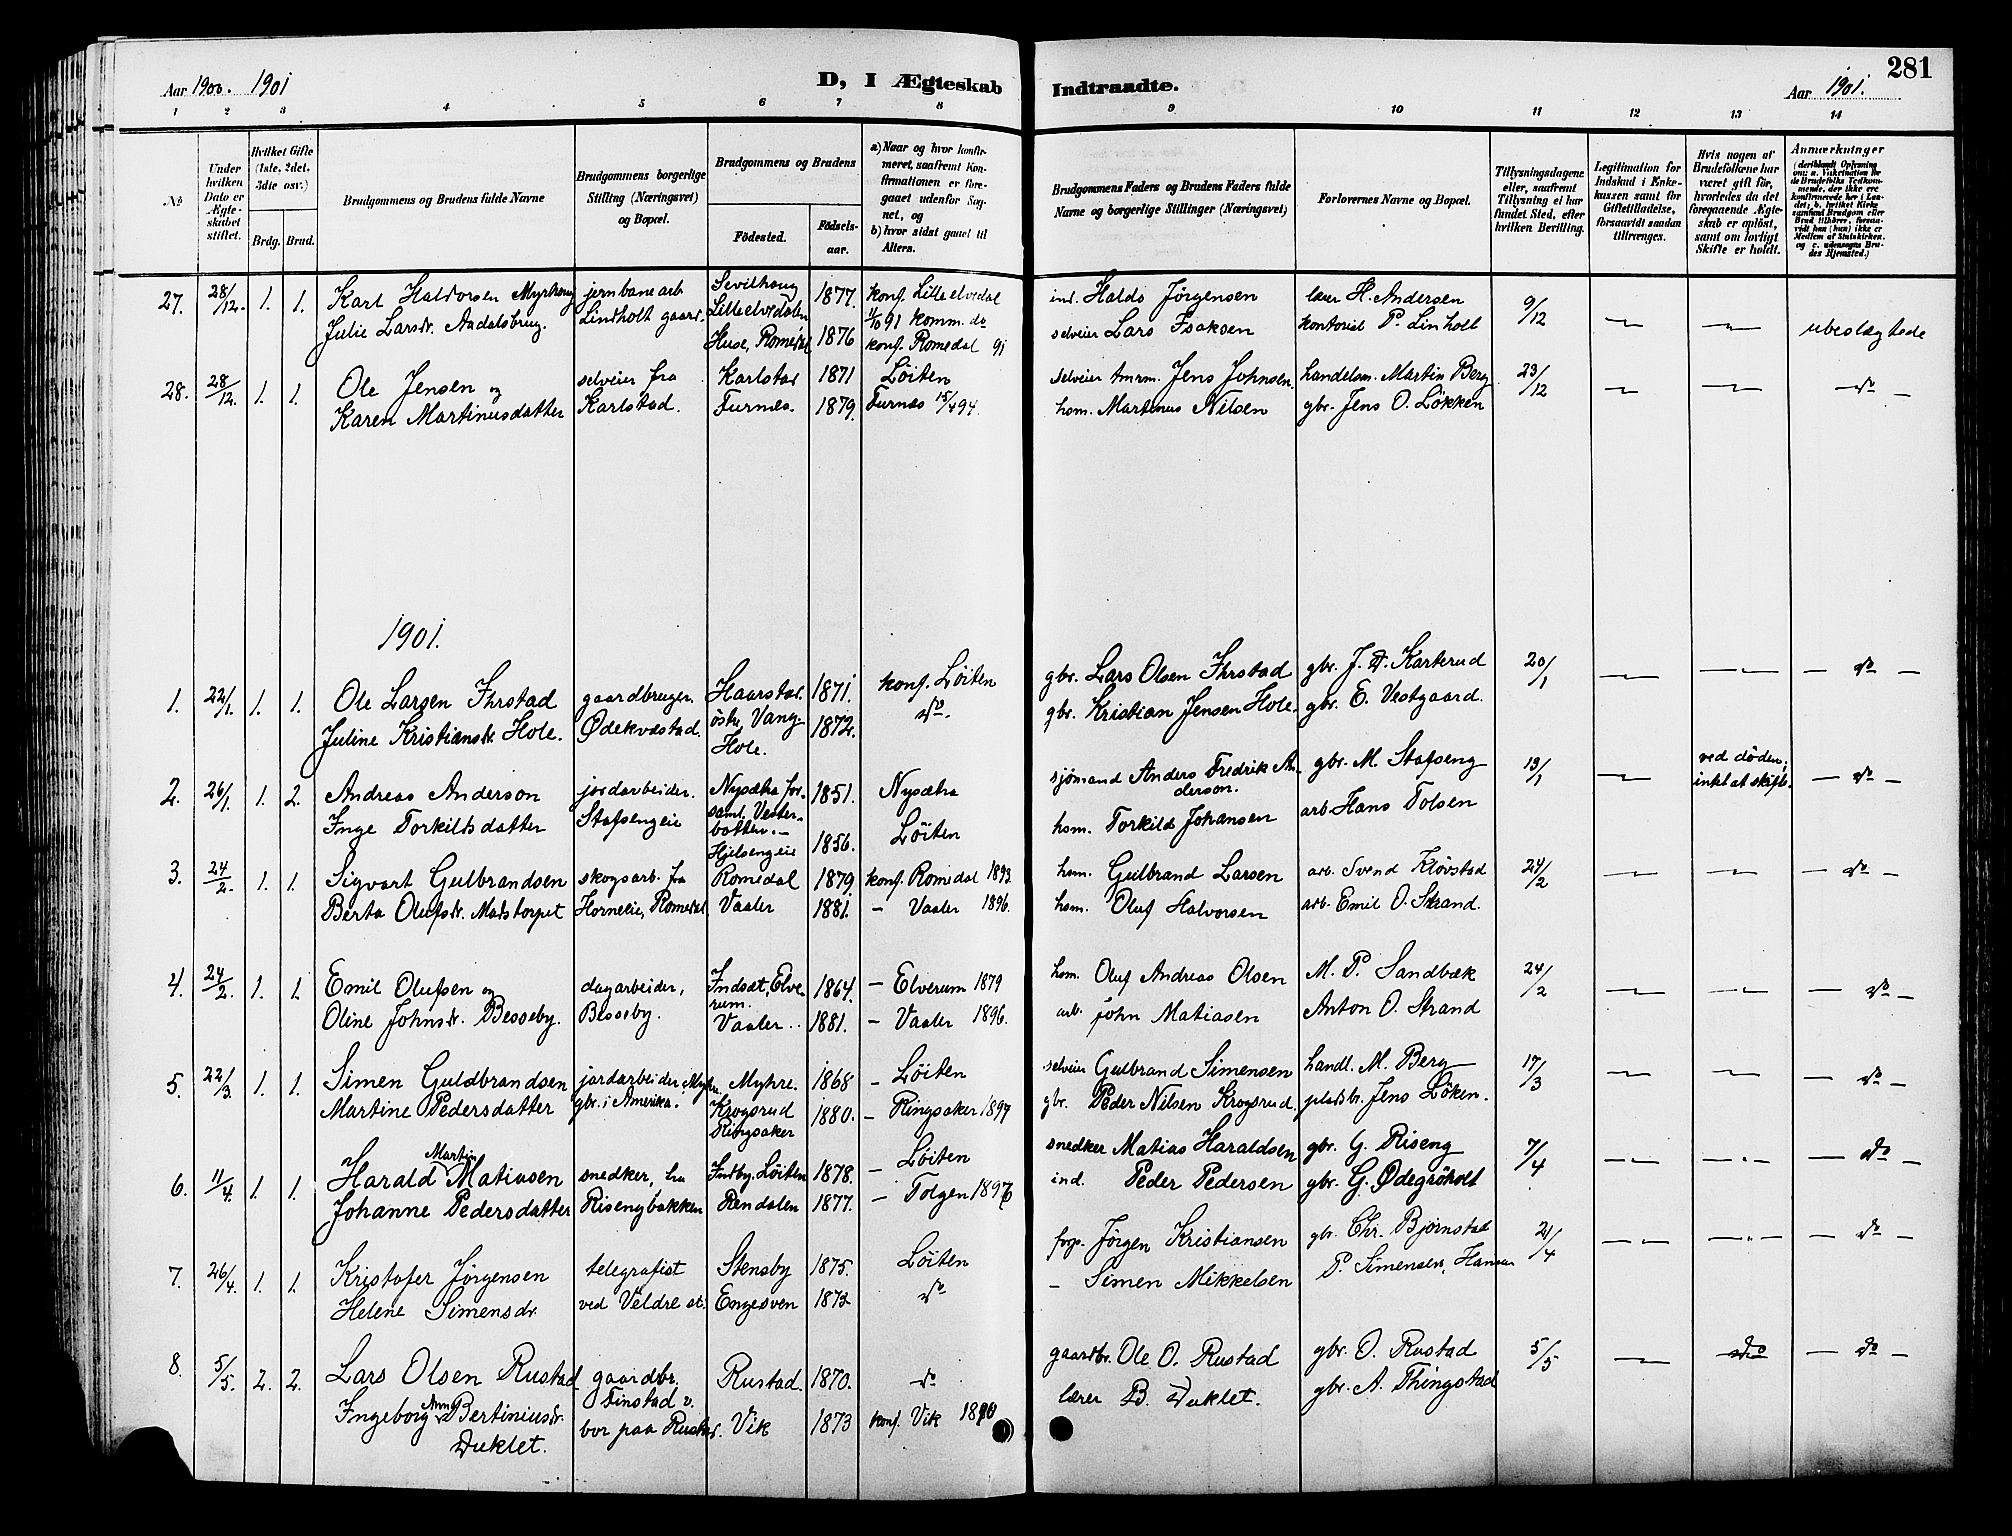 Aar 1900. 1901
D, I Ægteskab Indtraadte.
Aar 1901.
281
1 2 3 4 5 6 7 8 9 10 11 12 13 14
No
Under hvilken Dato er Ægteskabet stiftet.
Hvilket Gifte (1ste, 2det, 3die osv.)
Brdg. Brud.
Brudgommens og Brudens fulde Navne
Brudgommens borgerlige Stilling (Næringsvei) og Bopæl.
Brudgommens og Brudens
Födested.
Födselsaar.
a) Naar og hvor konfirmeret, saafremt Konfirmationen er foregaaet udenfor Sognet, og
b) hvor sidst gaaet til Alters.
Brudgommens Faders og Brudens Faders fulde Navne og borgerlige Stillinger (Næringsvei)
Forlovernes Navne og Bopæl.
Tillysningsdagene eller, saafremt Tillysning ei har fundet Sted, efter hvilken Bevilling.
Legitimation for Indskud i Enkekassen samt for Giftetilladelse, forsaavidt saadan tiltrænges.
Hvis nogen af Brudefolkene har været gift før, hvorledes da det foregaaende Ægteskab er opløst, samt om lovligt Skifte er holdt.
Anmærkninger
27. 28/12. 1. 1. Karl Haldorsen Myrhaug jernbanearb Sevilhaug 1877. konf. Lille elvedal ind. Haldo Jørgensen lærer H. Andersen 9/12
Julie Larsdr. Aadalsbrug. Lindholt gaard. Lilleelvedalen 91 komm. do selveier Lars Isaksen kontorist P. Linholt ubeslægtede
Huse, Romedal 1876 konf. Romedal 91
28. 28/12. 1. 1. Ole Jensen og selveier fra Karlstad 1871 Löiten selveier tmrm. Jens Johnsen. handelsm. Martin Berg 23/12 do
Karen Martinusdatter Karlstad. Furnes. 1879. Furnes 15/4 94. hsm. Martinus Nilsen gbr. Jens O. Løkken
1901.
1. 22/1. 1. 1. Ole Larsen Ihrstad gaardbruger Haarstad. 1871. konf. Löiten gbr. Lars Olsen Ihrstad gbr. J. A. Karterud 20/1 do
Juline Kristiansdr. Hole. Ødekvæstad. östre Vang 1872. do. gbr. Kristian Jensen Hole. gbr. E. Vestgaard.
Hole.
2. 26/1. 1. 2. Andreas Anderson jordarbeider. Nysætra for- 1851. Nysætra sjömand Anders Fredrik An- gbr. M. Stafseng 13/1 ved döden; do
derson. intet at skifte.
Inge Torkildsdatter Stafsengeie saml. Vester-
botten. Hjelsengeie 1856. Löiten hsm. Torkild Johansen arb Hans Tolsen
3. 24/2. 1. 1. Sigvart Gulbrandsen skogsarb. fra Romedal 1879. konf. Romedal 1893 hsm. Gulbrand Larsen arb. Svend Kløvstad 24/2 do
Berta Olufsdr. Madstorpet Horneeie, Romedal Vaaler 1881. - Vaaler 1896. hsm. Oluf Halvorsen arb. Emil O. Strand.
4. 24/2. 1. 1. Emil Olufsen og dagarbeider, Indsæt, Elve- 1864. - Elverum 1879 hsm. Oluf Andreas Olsen M. P. Sandbæk 24/2 do
rum.
Oline Johnsdr. Besseby. Besseby. Vaaler 1881. - Vaaler 1896. arb. John Matiasen Anton O. Strand
5. 22/3. 1. 1. Simen Guldbrandsen jordarbeider, Myhre. Myhre. 1868 - Löiten selveier Gulbrand Simensen handl. M. Berg 17/3 do
Martine Pedersdatter gbr. i Amerika. Krogsrud 1880. - Ringsaker 1897 gbr. Peder Nilsen Krogsrud. pladsbr. Jens Löken.
Ringsaker
6. 11/4. 1. 1. Harald Martin Matiasen snedker, fra Indby, Löiten 1878. - Löiten snedker Matias Haraldsen gbr. G. Riseng 7/4 do
Johanne Pedersdatter Risengbakken Rendalen 1877. - Tolgen 1897 ind. Peder Pedersen gbr. G. Ødegröholt
7. 26/4. 1. 1. Kristofer Jørgensen telegrafist Stensby 1875. Löiten forp. Jørgen Kristiansen gbr. Chr. Bjørnstad 21/4 do
Helene Simensdr. ved Veldre st. Engesven 1873 do - Simen Mikkelsen P. Simensen,
8. 5/5. 2. 2. Lars Olsen Rustad gaardbr. Rustad. 1870. do gaardbr. Ole O. Rustad gbr. O. Rustad 5/5 do do
Ingeborg Anna Bertiniusdr. Finstad v. lærer B. Duklet. gbr. A. Thingstad
Duklet. bor paa Rustad. Vik 1873 konf. Vik